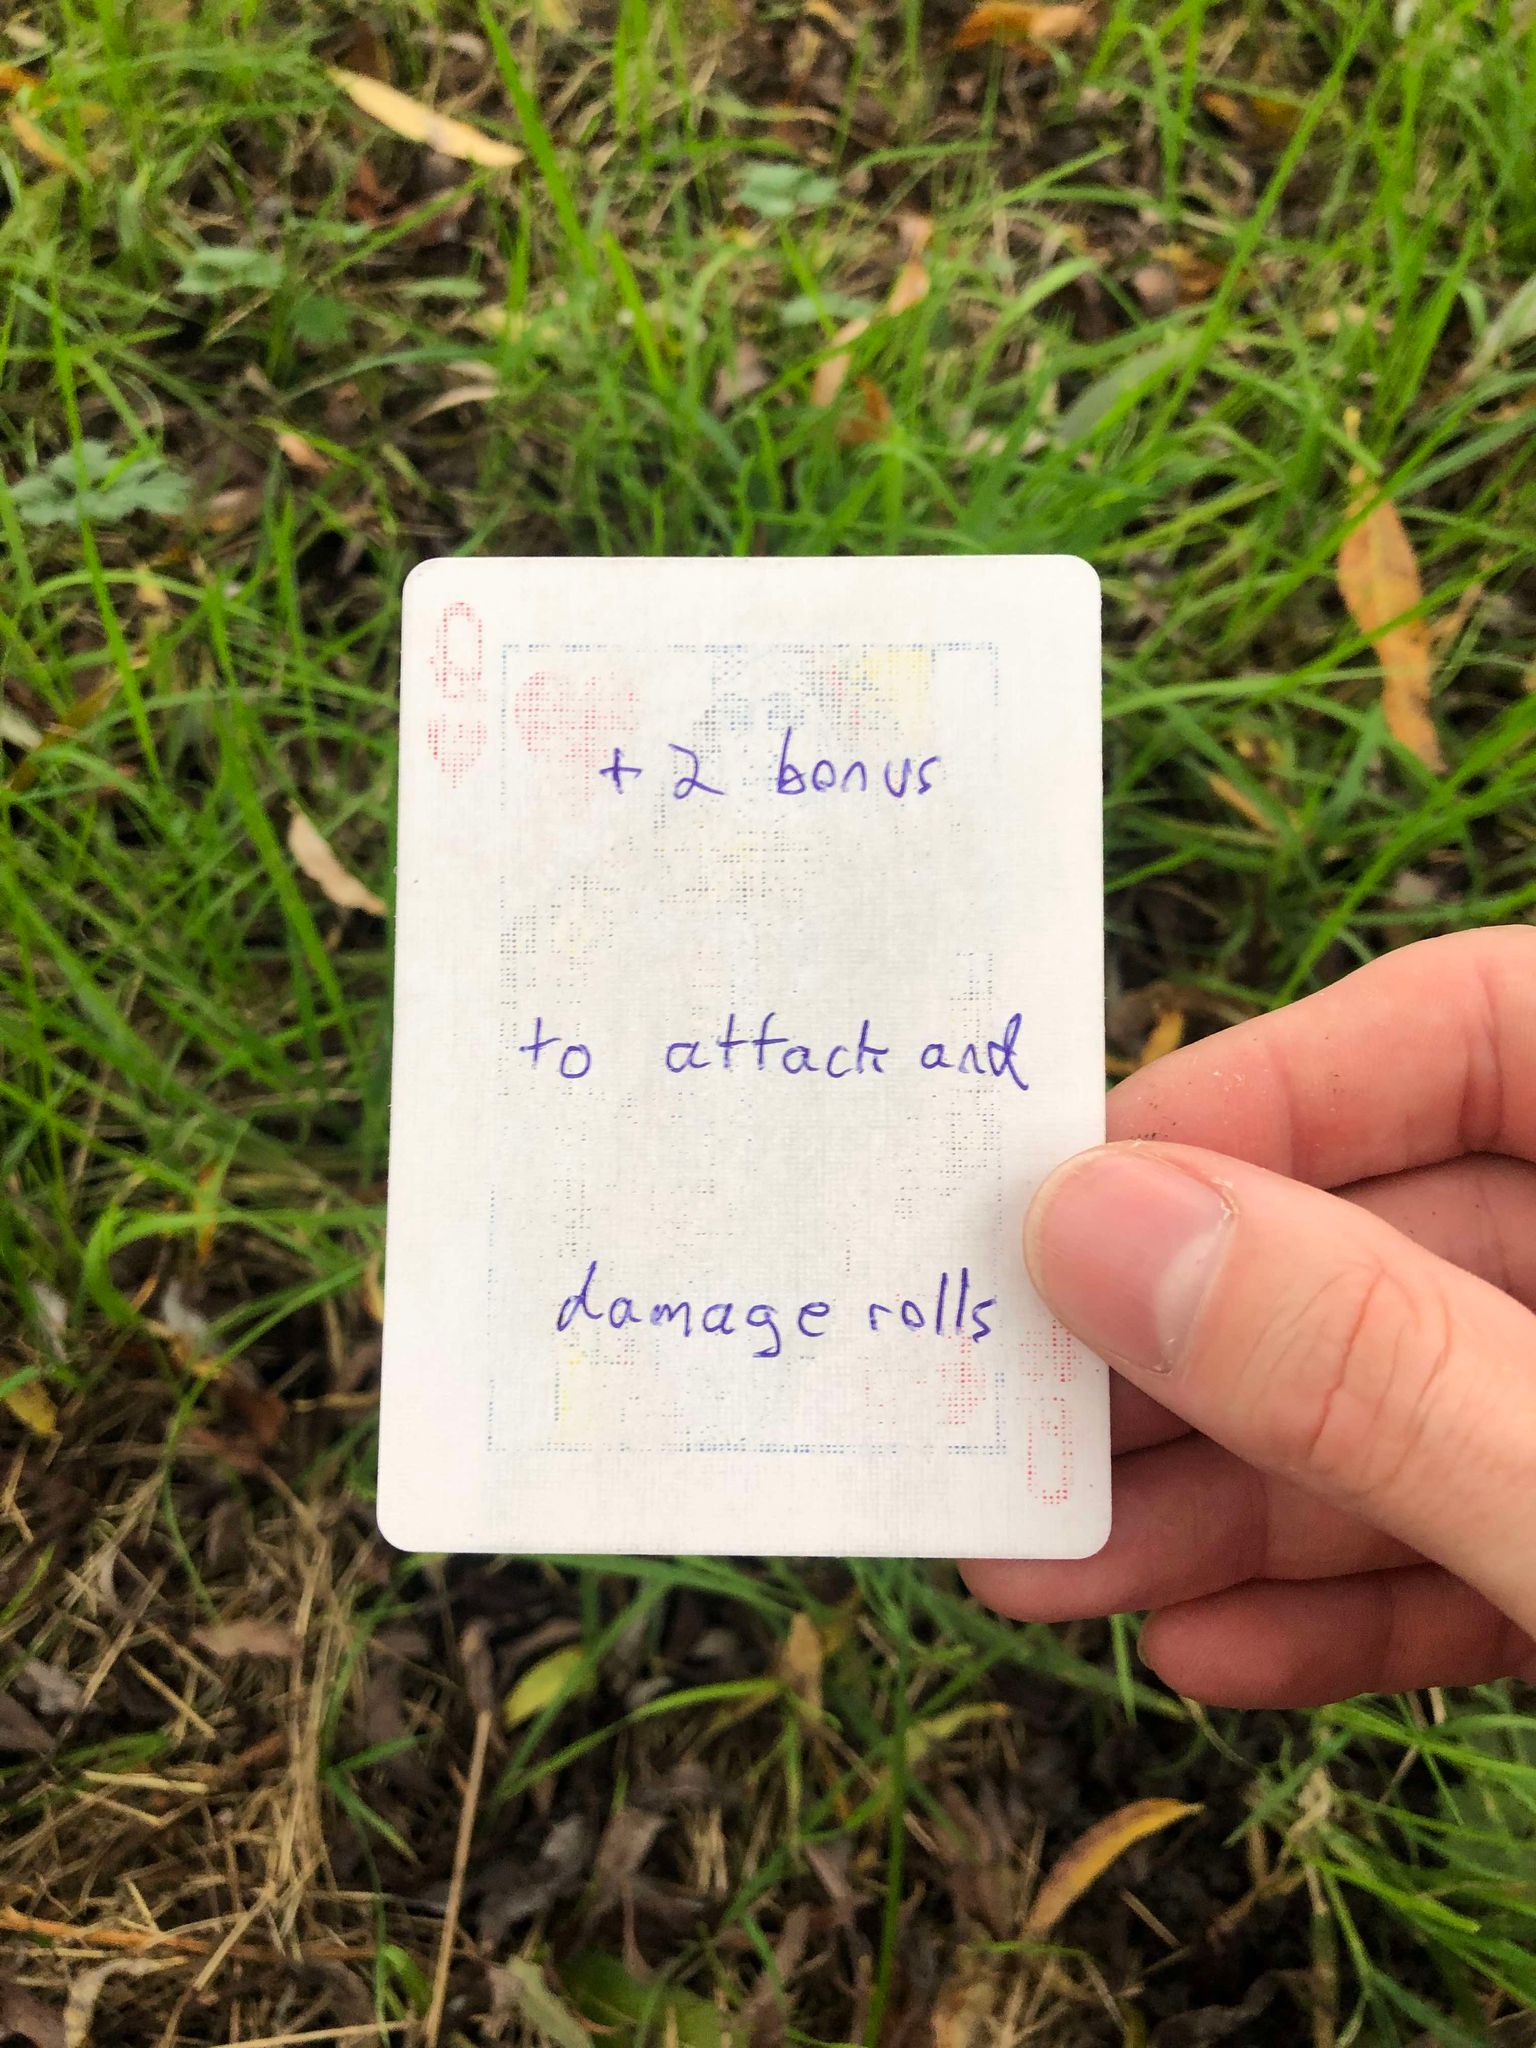 +2 bonus
to attack and
damage rolls